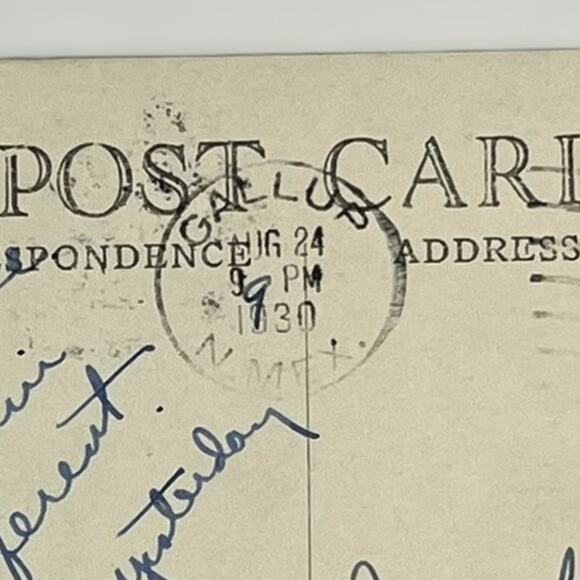 POST CARD
GALLUP
SPONDENCE ADDRESS
AUG 24
9 PM
1930
N. MEX.
yesterday